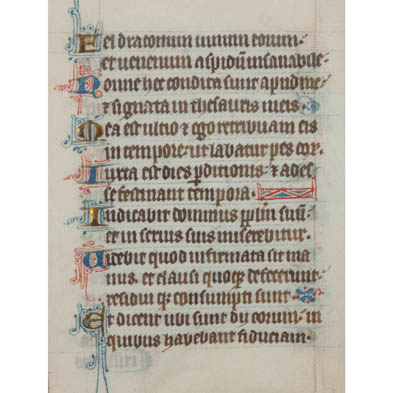 Fel draconum uinum eorum.
et uenenum aspidum insanabile.
Nonne hec condita sunt apud me.
⁊ signata in thesauris meis.
Mea est ultio ⁊ ego retribuam eis
in tempore. ut labatur pes eor.
Iuxta est dies pditionis. ⁊ ades
se festinant tempora.
Iudicabit dominus pplm suū.
et in seruis suis miserebitur.
Uidebit quod infirmata sit ma
nus. et clausi quoqꝫ defecerunt.
residui qꝫ consumpti sunt.
Et dicent ubi sunt dii eorum. in
quibus habebant fiduciam.